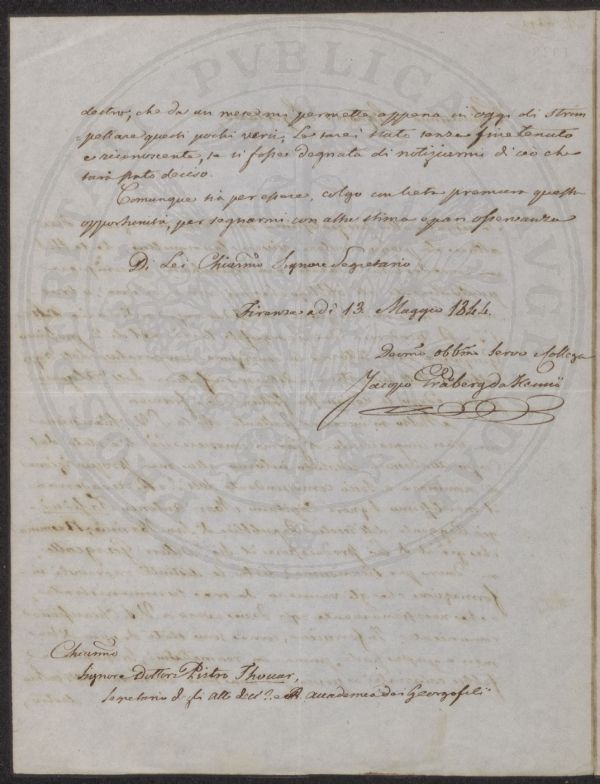 destro, che da un mese mi permette appena in oggi di strim
pellare questi pochi versi, Le sarei stato senza fine tenuto
e riconoscente, se si fosse degnata di notiziarmi di ciò che
sarà stato deciso.
Comunque sia per essere, colgo con lieta premura questa
opportunità, per segnarmi con alta stima e pari osservanza
Di Lei Chiarmo Signore Segretario
Firenze a dì 13. Maggio 1844.
Devmo obbmo servo e Collega
Jacopo Gråberg da Hemsö
Chiarmo
Signore Dottore Pietro Thouar,
Segretario d. gli atti della R. Accademia dei Georgofili
PVBLICAE
PROSPERITATI AVGENDAE